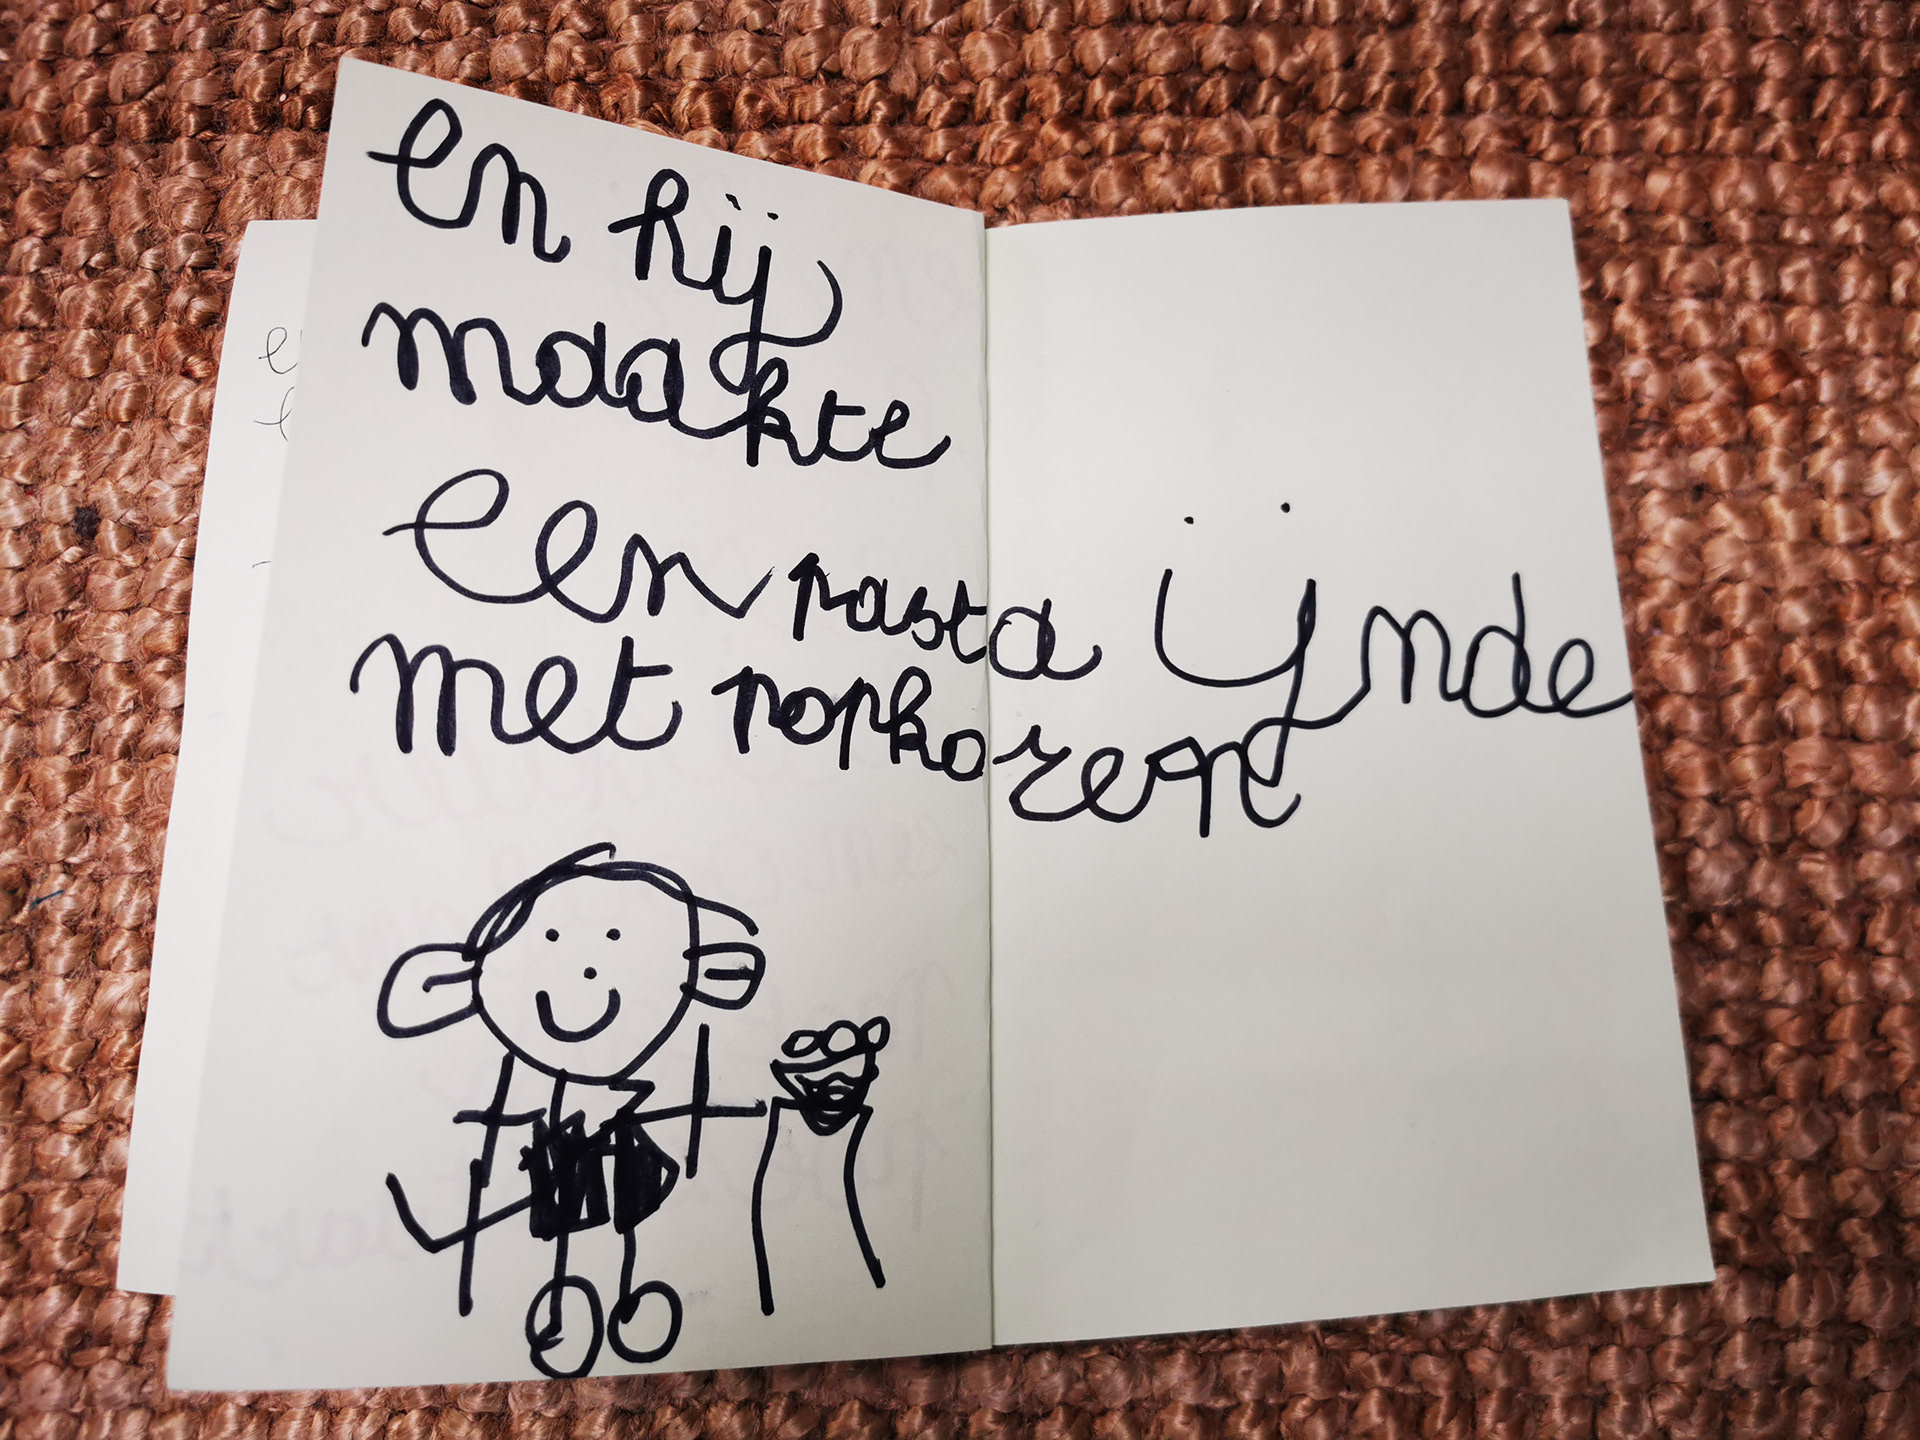 en hij
maakte
een pasta
met popkoren
ijnde